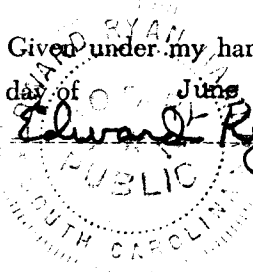 Given under my han
day of June
Edward R
PUBLIC
SOUTH CAROLINA